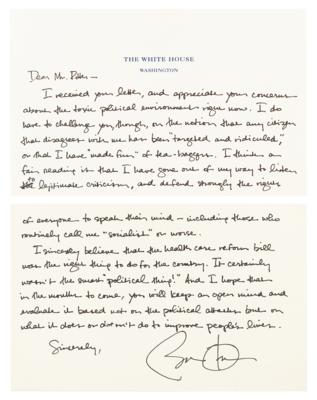 THE WHITE HOUSE
WASHINGTON
Dear Mr. Ritter —
I received your letter, and appreciate your concerns
about the toxic political environment right now. I do
have to challenge you, though, on the notion that any citizen
that disagrees with me has been "targeted and ridiculed",
or that I have "made fun" of tea-baggers. I think a
fair reading is that I have gone out of my way to listen
to legitimate criticism, and defend strongly the right
of everyone to speak their mind — including those who
routinely call me "socialist" or worse.
I sincerely believe that the health care reform bill
was the right thing to do for the country. It certainly
wasn't the smart "political thing!" And I hope that
in the months to come, you will keep an open mind and
evaluate it based not on the political attacks but on
what it does or doesn't do to improve people's lives.
Sincerely,